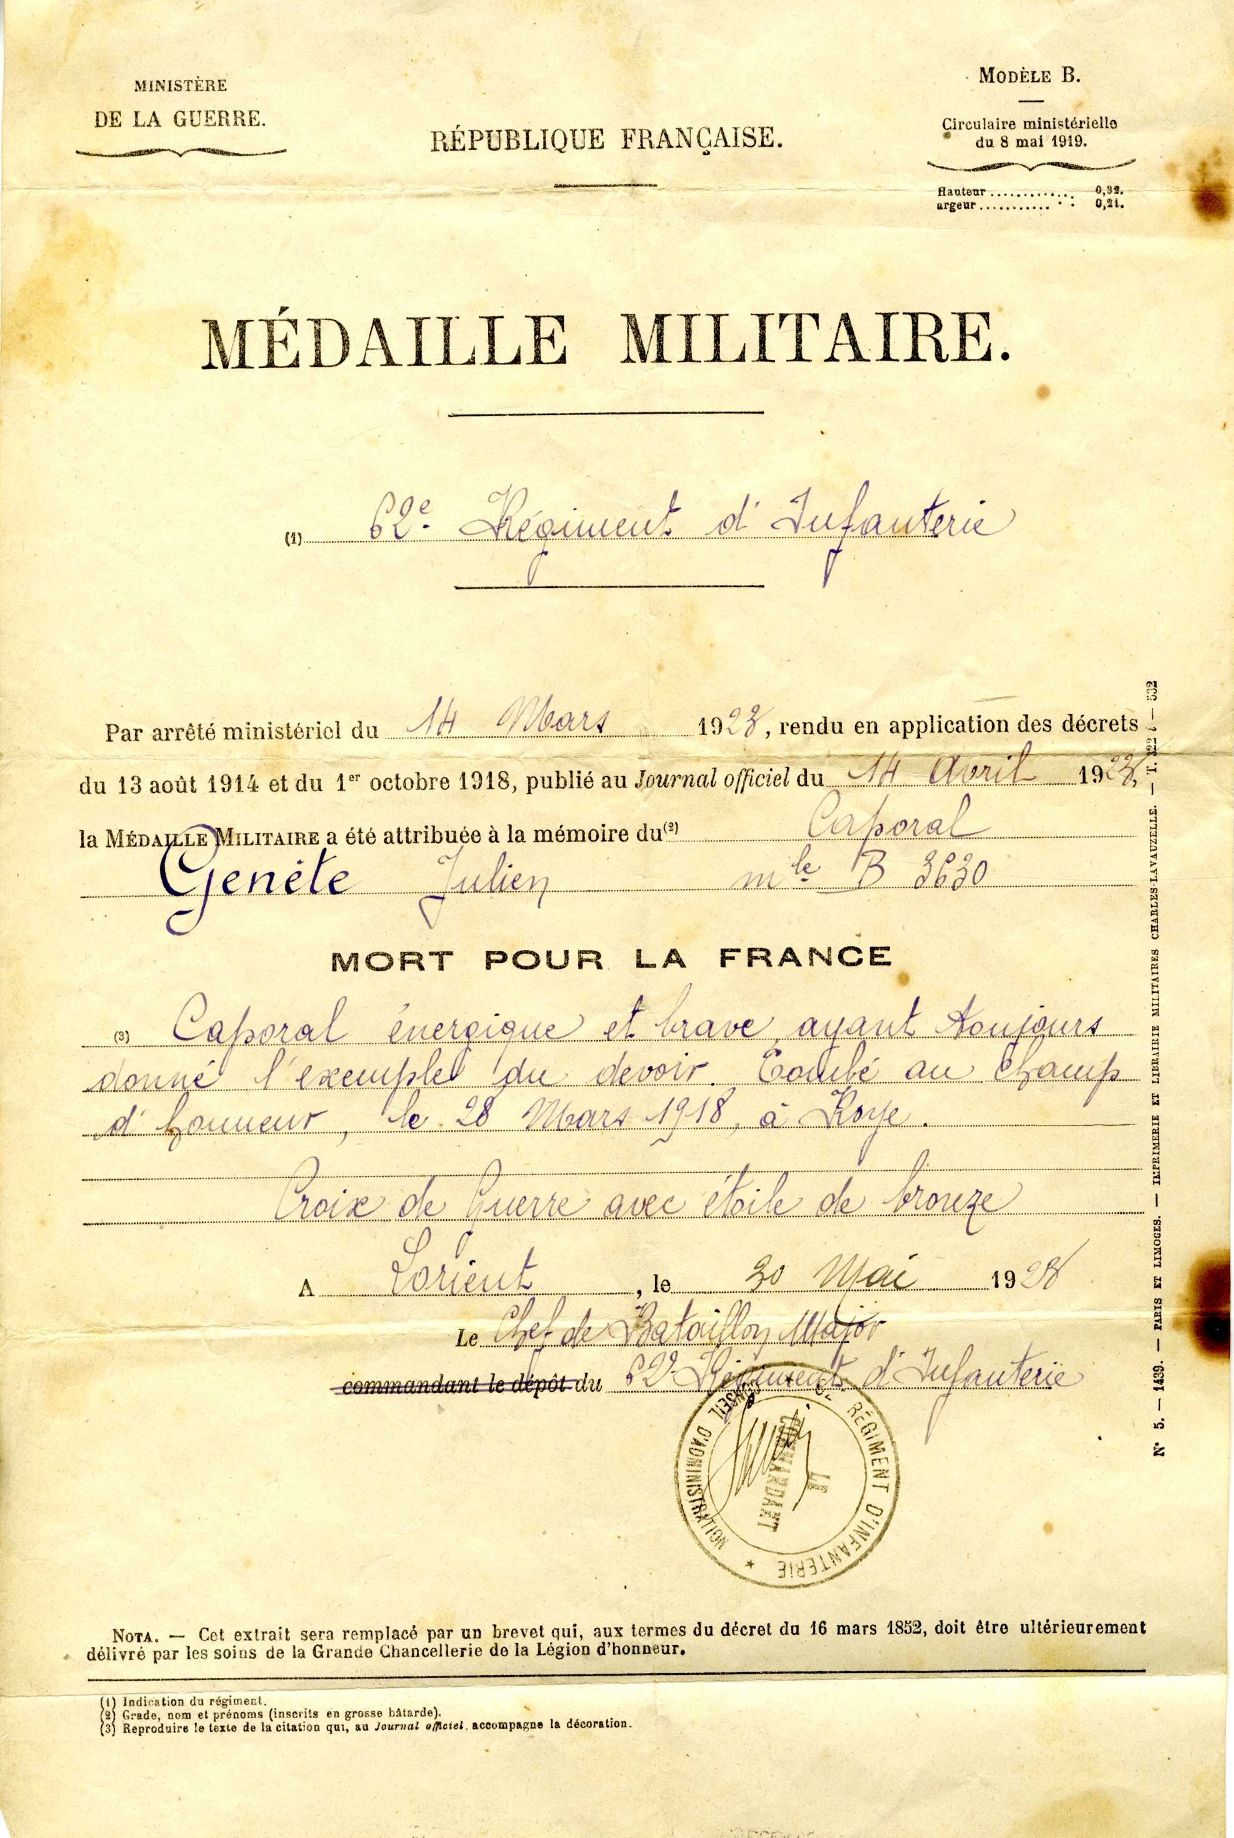 MINISTÈRE
DE LA GUERRE.
RÉPUBLIQUE FRANÇAISE.
MODÈLE B.
Circulaire ministérielle
du 8 mai 1919.
Hauteur ............ 0,32.
argeur ........... 0,21.
MÉDAILLE MILITAIRE.
(1) 62e Régiment d'Infanterie
Par arrêté ministériel du 14 Mars 192, rendu en application des décrets
du 13 août 1914 et du 1er octobre 1918, publié au Journal officiel du 14 Avril 192
la MÉDAILLE MILITAIRE a été attribuée à la mémoire du (2) Caporal
Genéte Julien mle B 3630
MORT POUR LA FRANCE
(3) Caporal énergique et brave ayant toujours
donné l'exemple du devoir. Tombé au champ
d'honneur, le 28 Mars 1918, à Roye.
Croix de Guerre avec étoile de bronze
A Lorient, le 30 Mai 192
Le Chef de Bataillon Major
commandant le dépôt du 62e Régiment d'Infanterie
62e RÉGIMENT D'INFANTERIE * CONSEIL D'ADMINISTRATION *
LE
COMMANDANT
NOTA. — Cet extrait sera remplacé par un brevet qui, aux termes du décret du 16 mars 1852, doit être ultérieurement
délivré par les soins de la Grande Chancellerie de la Légion d'honneur.
(1) Indication du régiment.
(2) Grade, nom et prénoms (inscrits en grosse bâtarde).
(3) Reproduire le texte de la citation qui, au Journal officiel, accompagne la décoration.
N° 5. — 1439. — PARIS ET LIMOGES. — IMPRIMERIE ET LIBRAIRIE MILITAIRES CHARLES-LAVAUZELLE. — T.